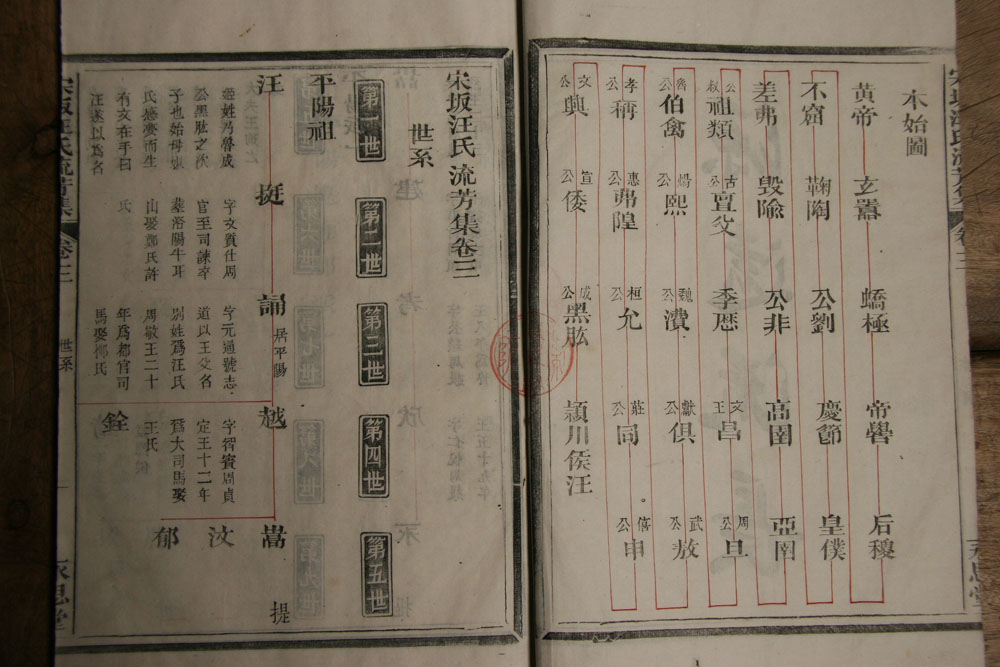 木始圖
黃帝 玄囂 蟜極 帝嚳 后稷
不窟 鞠陶 公劉 慶節 皇僕
差弗 毀隃 公非 高圉 亞圉
公叔祖類 古公亶父 季歷 文王昌 周公旦
魯公伯禽 煬公熙 魏公㵒 獻公俱 武公敖
孝公稱 惠公弗隍 桓公允 莊公同 僖公申
文公興 宣公倭 成公黑肱 潁川侯汪
宋坂汪氏流芳集卷三
世系
第一世 第二世 第三世 第四世 第五世
平陽祖
汪 挺 誦 居平陽 越 嵩 提
姬姓乃魯成
公黑肱之次
子也始母姒
氏感夢而生
有文在手曰
汪遂以爲名
字文質仕周
官至司諫卒
葬洛陽牛耳
山娶鄭氏許
氏
字元通號志
道以王父名
別姓爲汪氏
周敬王二十
年爲都官司
馬娶鄒氏
字智賓周貞
定王十二年
爲大司馬娶
王氏
銓
汶
郁
宋坂汪氏流芳集 卷三 世系 承思堂